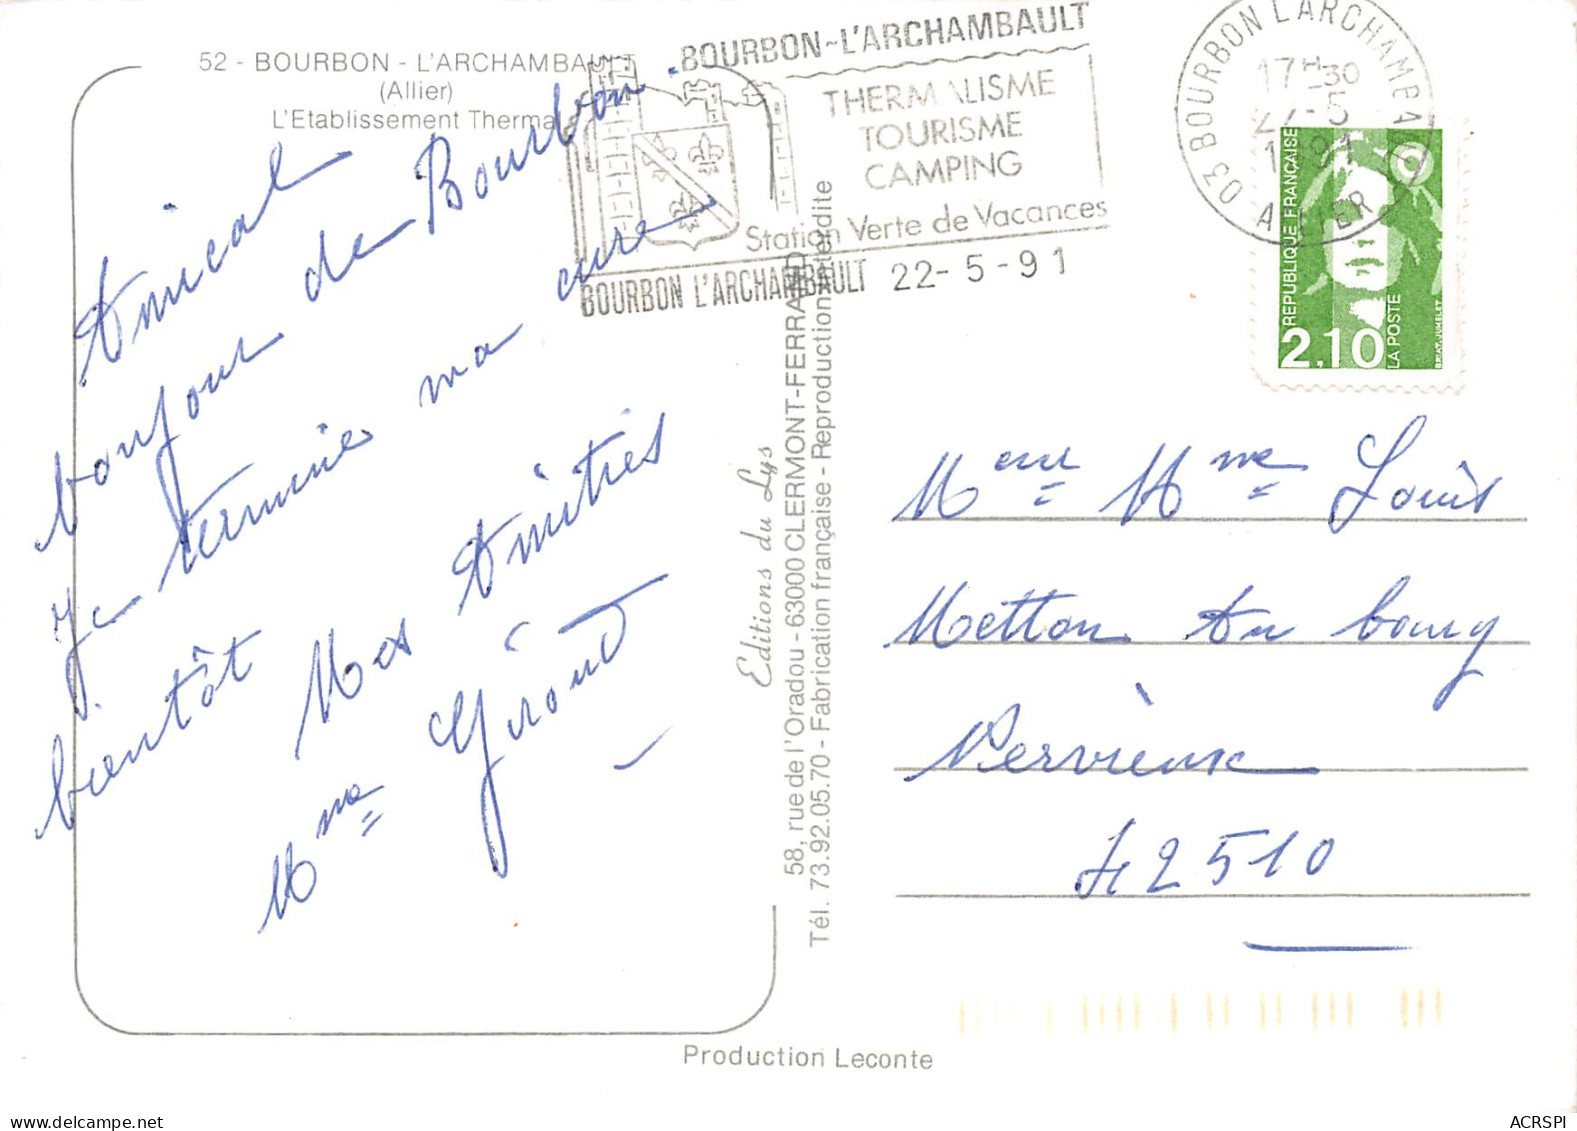 52 - BOURBON - L'ARCHAMBAULT
(Allier)
L'Etablissement Thermal
Amical
bonjour de Bourbon.
Je termine ma cure
bientôt Mes Amitiés
Mme Giroud
BOURBON~L'ARCHAMBAULT
THERMALISME
TOURISME
CAMPING
Station Verte de Vacances
BOURBON L'ARCHAMBAULT 22-5-91
03 BOURBON L'ARCHAMBAULT
17H30
22-5
1991
ALLIER
REPUBLIQUE FRANÇAISE
2,10
LA POSTE
BRIAT.JUMELET
Editions du Lys
58, rue de l'Oradou - 63000 CLERMONT-FERRAND
Tél. 73.92.05.70 - Fabrication française - Reproduction interdite
Meur Mme Louis
Metton Au bourg
Nervieux
42510
Production Leconte
ACRSPI